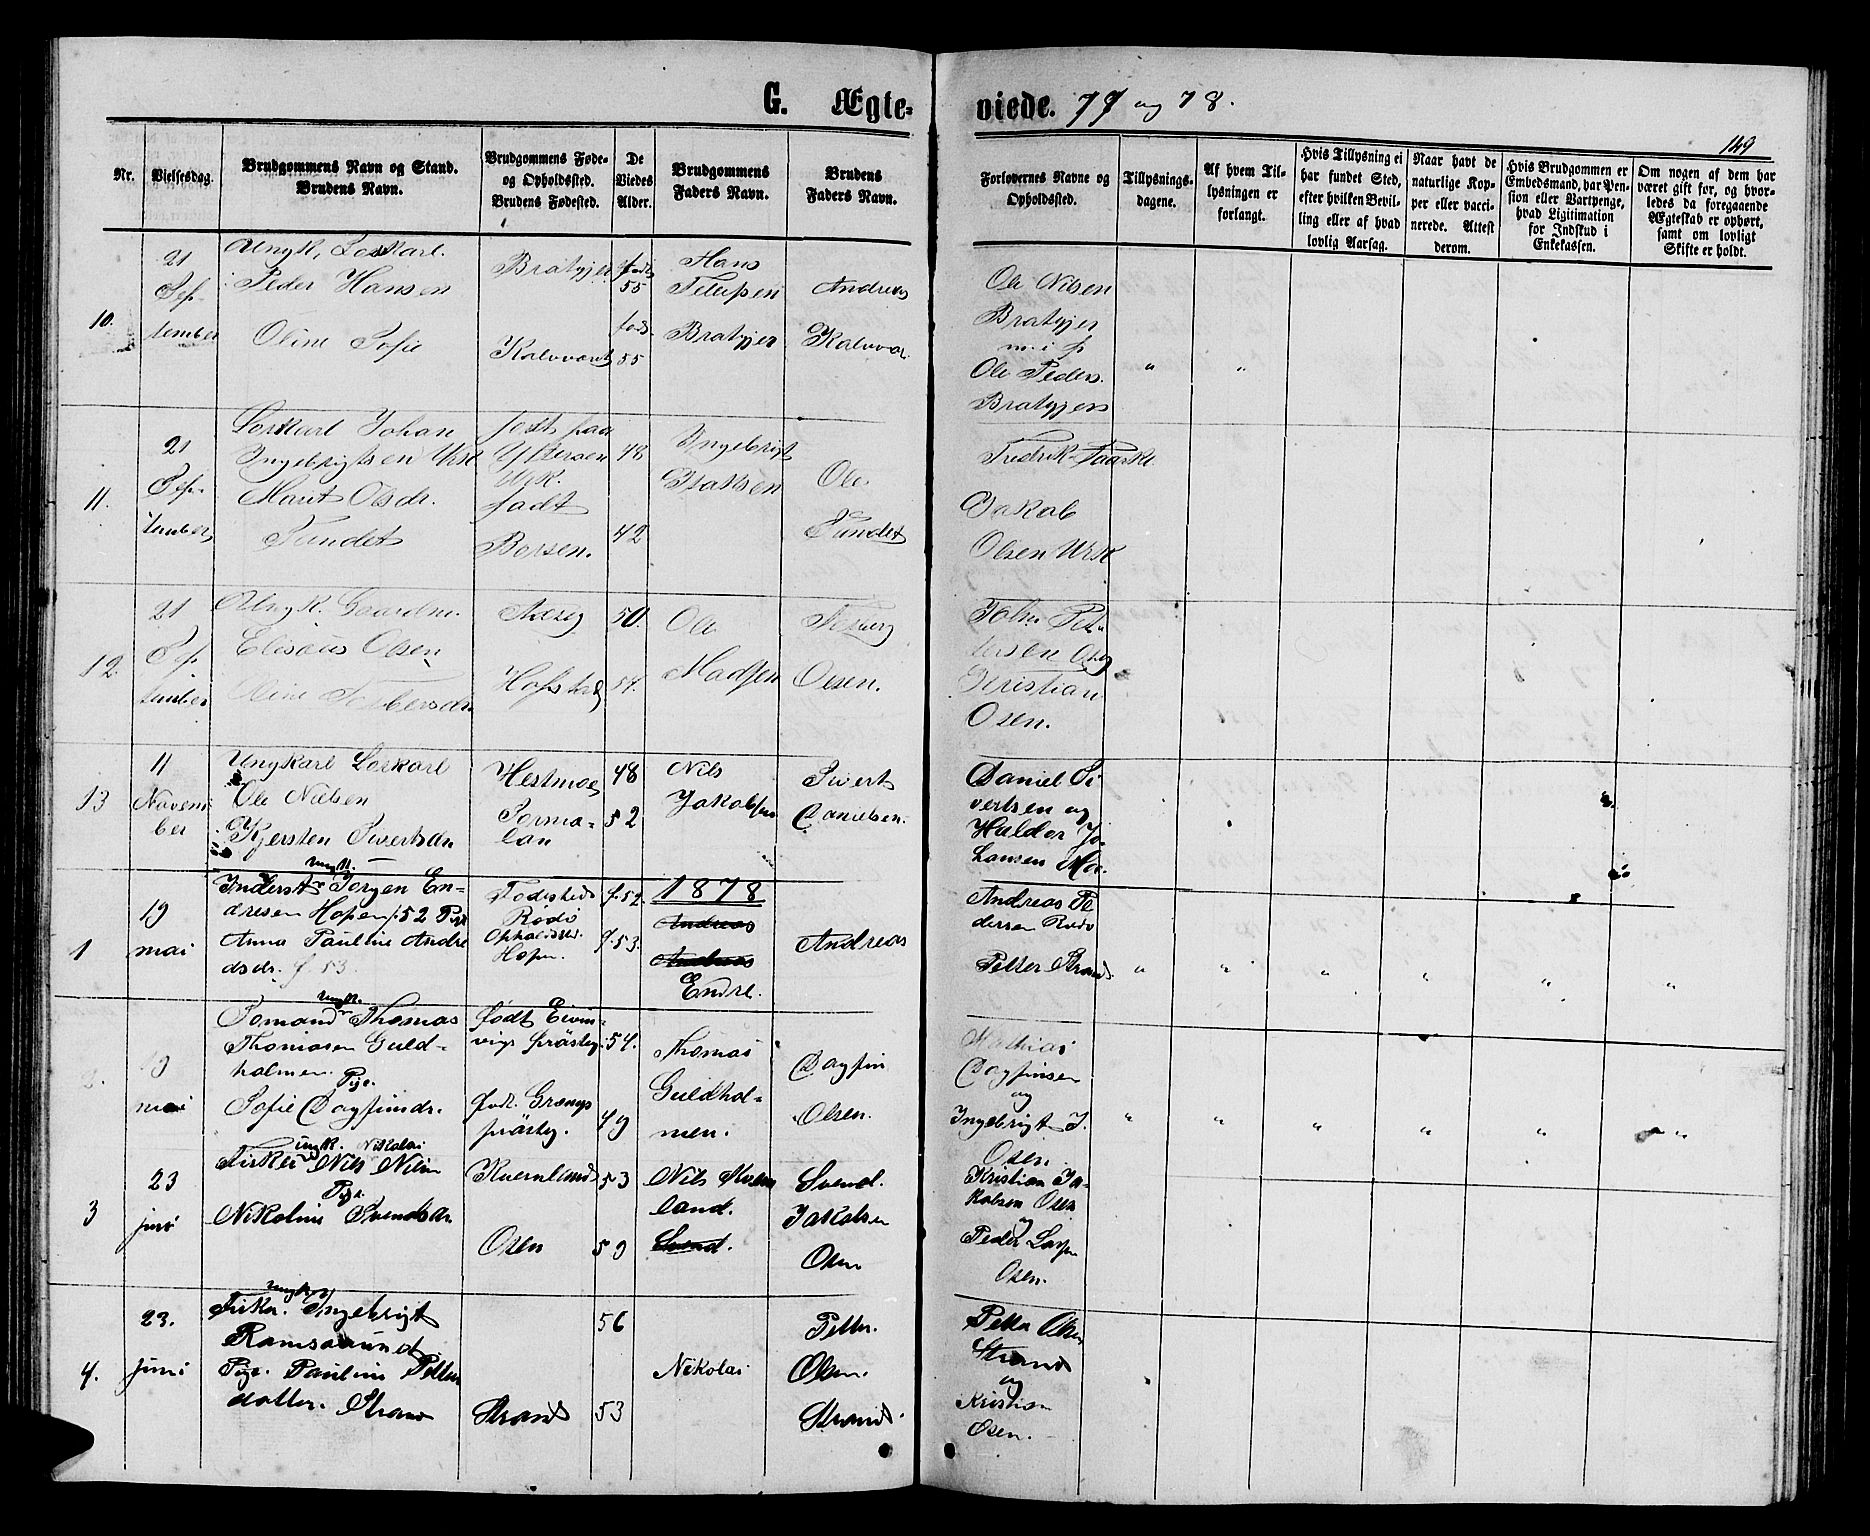 G. Ægte-
viede. 77 og 78.
149
Nr.
Vielsesdag.
Brudgommens Navn og Stand.
Brudens Navn.
Brudgommens Føde-
og Opholdssted.
Brudens Fødested.
De
Viedes
Alder.
Brudgommens
Faders Navn.
Brudens
Faders Navn.
Forlovernes Navne og
Opholdssted.
Tillysnings-
dagene.
Af hvem Til-
lysningen er
forlangt.
Hvis Tillysning ei
har fundet Sted,
efter hvilken Bevil-
ling eller af hvad
lovlig Aarsag.
Naar havt de
naturlige Kop-
per eller vacci-
nerede. Attest
derom.
Hvis Brudgommen er
Embedsmand, har Pen-
sion eller Vartpenge,
hvad Ligitimation
for Indskud i
Enkekassen.
Om nogen af dem har
været gift for, og hvor-
ledes da foregaaende
Ægteskab er ophørt,
samt om lovligt
Skifte er holdt.
10.
21
Sep-
tember
Ungk, Løskarl.
Peder Hansen
Oline Sofie
55
55
Hans
Andreas
Ole Nilsen
Ole Peders.
11.
21
Sep-
tember
Løskarl Johan
Ingebrigtsen
Marit Olsdr.
Sundet
født paa
født
48
42
Ingebrigt
Isaksen
Ole
Sundet
Fredrik
Jakob
Olsen
12
21
Sep-
tember
Ungk. Gaardm.
Elisæus Olsen
Oline
Hofstad
50.
54.
Ole
Madsen
Olsen.
Kristian
Osen.
13
11
Novem-
ber
Ungkarl Løskarl
Ole Nielsen
og
Kjersten Sivertsdr
Hestmoe
Sørmo-
lan
48
52
Nils
Jakobsen
Sivert
Danielsen.
Daniel Si
vertsen og
Haldor Jo-
hansen Moe.
1878
1
19
mai
ungk.
Inderst Jørgen En-
dresen Hopen f. 52 Pige
Anna Pauline Andre
dsdr. f. 53.
Fødested
Rødø
Opholdsst.
Hopen.
f. 52.
f. 53.
Andreas
Andreas
Endre.
Andreas
Andreas Pe
dersen Rødø
Petter Strand
2.
19
mai
ungk.
Sømand Thomas
Thomasen Guld-
holmen. Pige.
Sofie Dagfinsdr.
født Eivin-
vigs præsteg.
født
præsteg.
54.
49
Thomas
Guldhol-
men.
Dagfin
Olsen.
Mathias
Dagfinsen
og
Ingebrigt J.
Osen.
3
23
juni
ungk. Nikolai
Fisker Nils Nilsen
Pige.
Nikoline Svendsdr.
Kvernland
Osen
53
59
Nils Kvern
land.
Svend.
Svend.
Jakobsen
Osen
Kristian Ja-
kobsen Osen
og
Peder Larsen
Osen.
4.
23.
juni
ungkarl
Fisker. Ingebrigt
Ramsøsund
Pige. Pauline Petter
datter. Strand
Strand
56
53
Nikolai
Petter.
Olsen.
Strand.
Petter Olsen
Strand
og
Kristian
Osen.